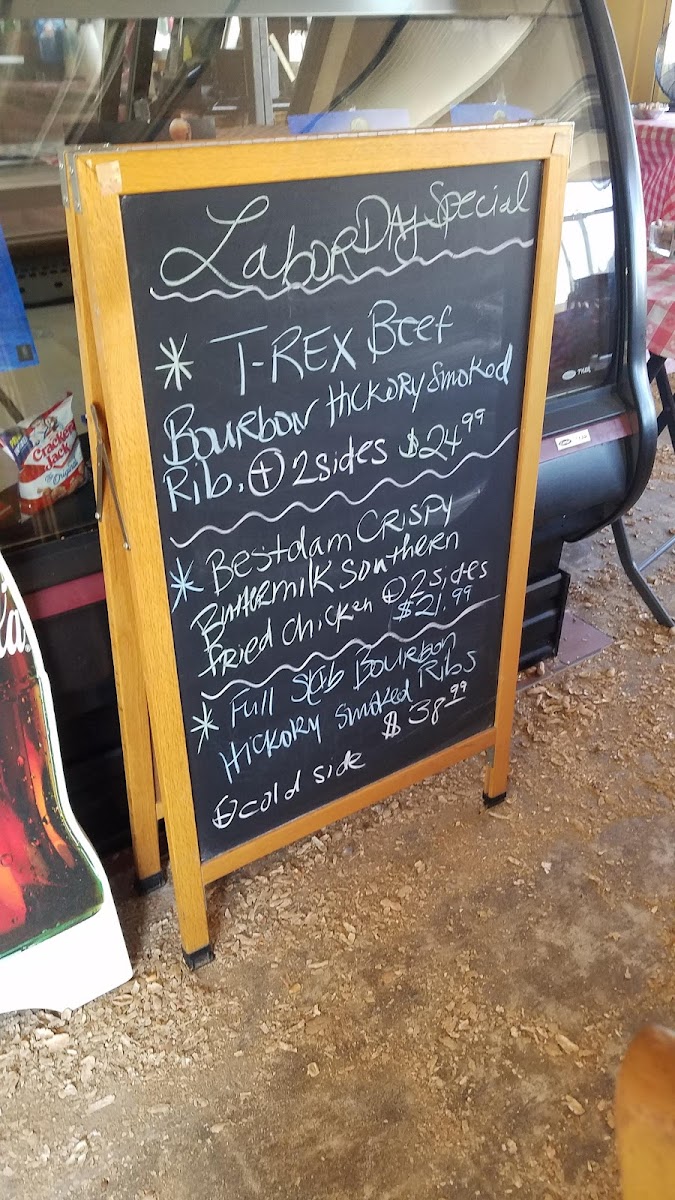 Labor Day Special
* T-Rex Beef
Bourbon Hickory Smoked
Rib. + 2 sides $24.99
* Bestdam Crispy
Buttermilk Southern
Fried Chicken + 2 sides
$21.99
* Full Slab Bourbon
Hickory Smoked Ribs
+ cold side $38.99
Cracker
Jack
The Original